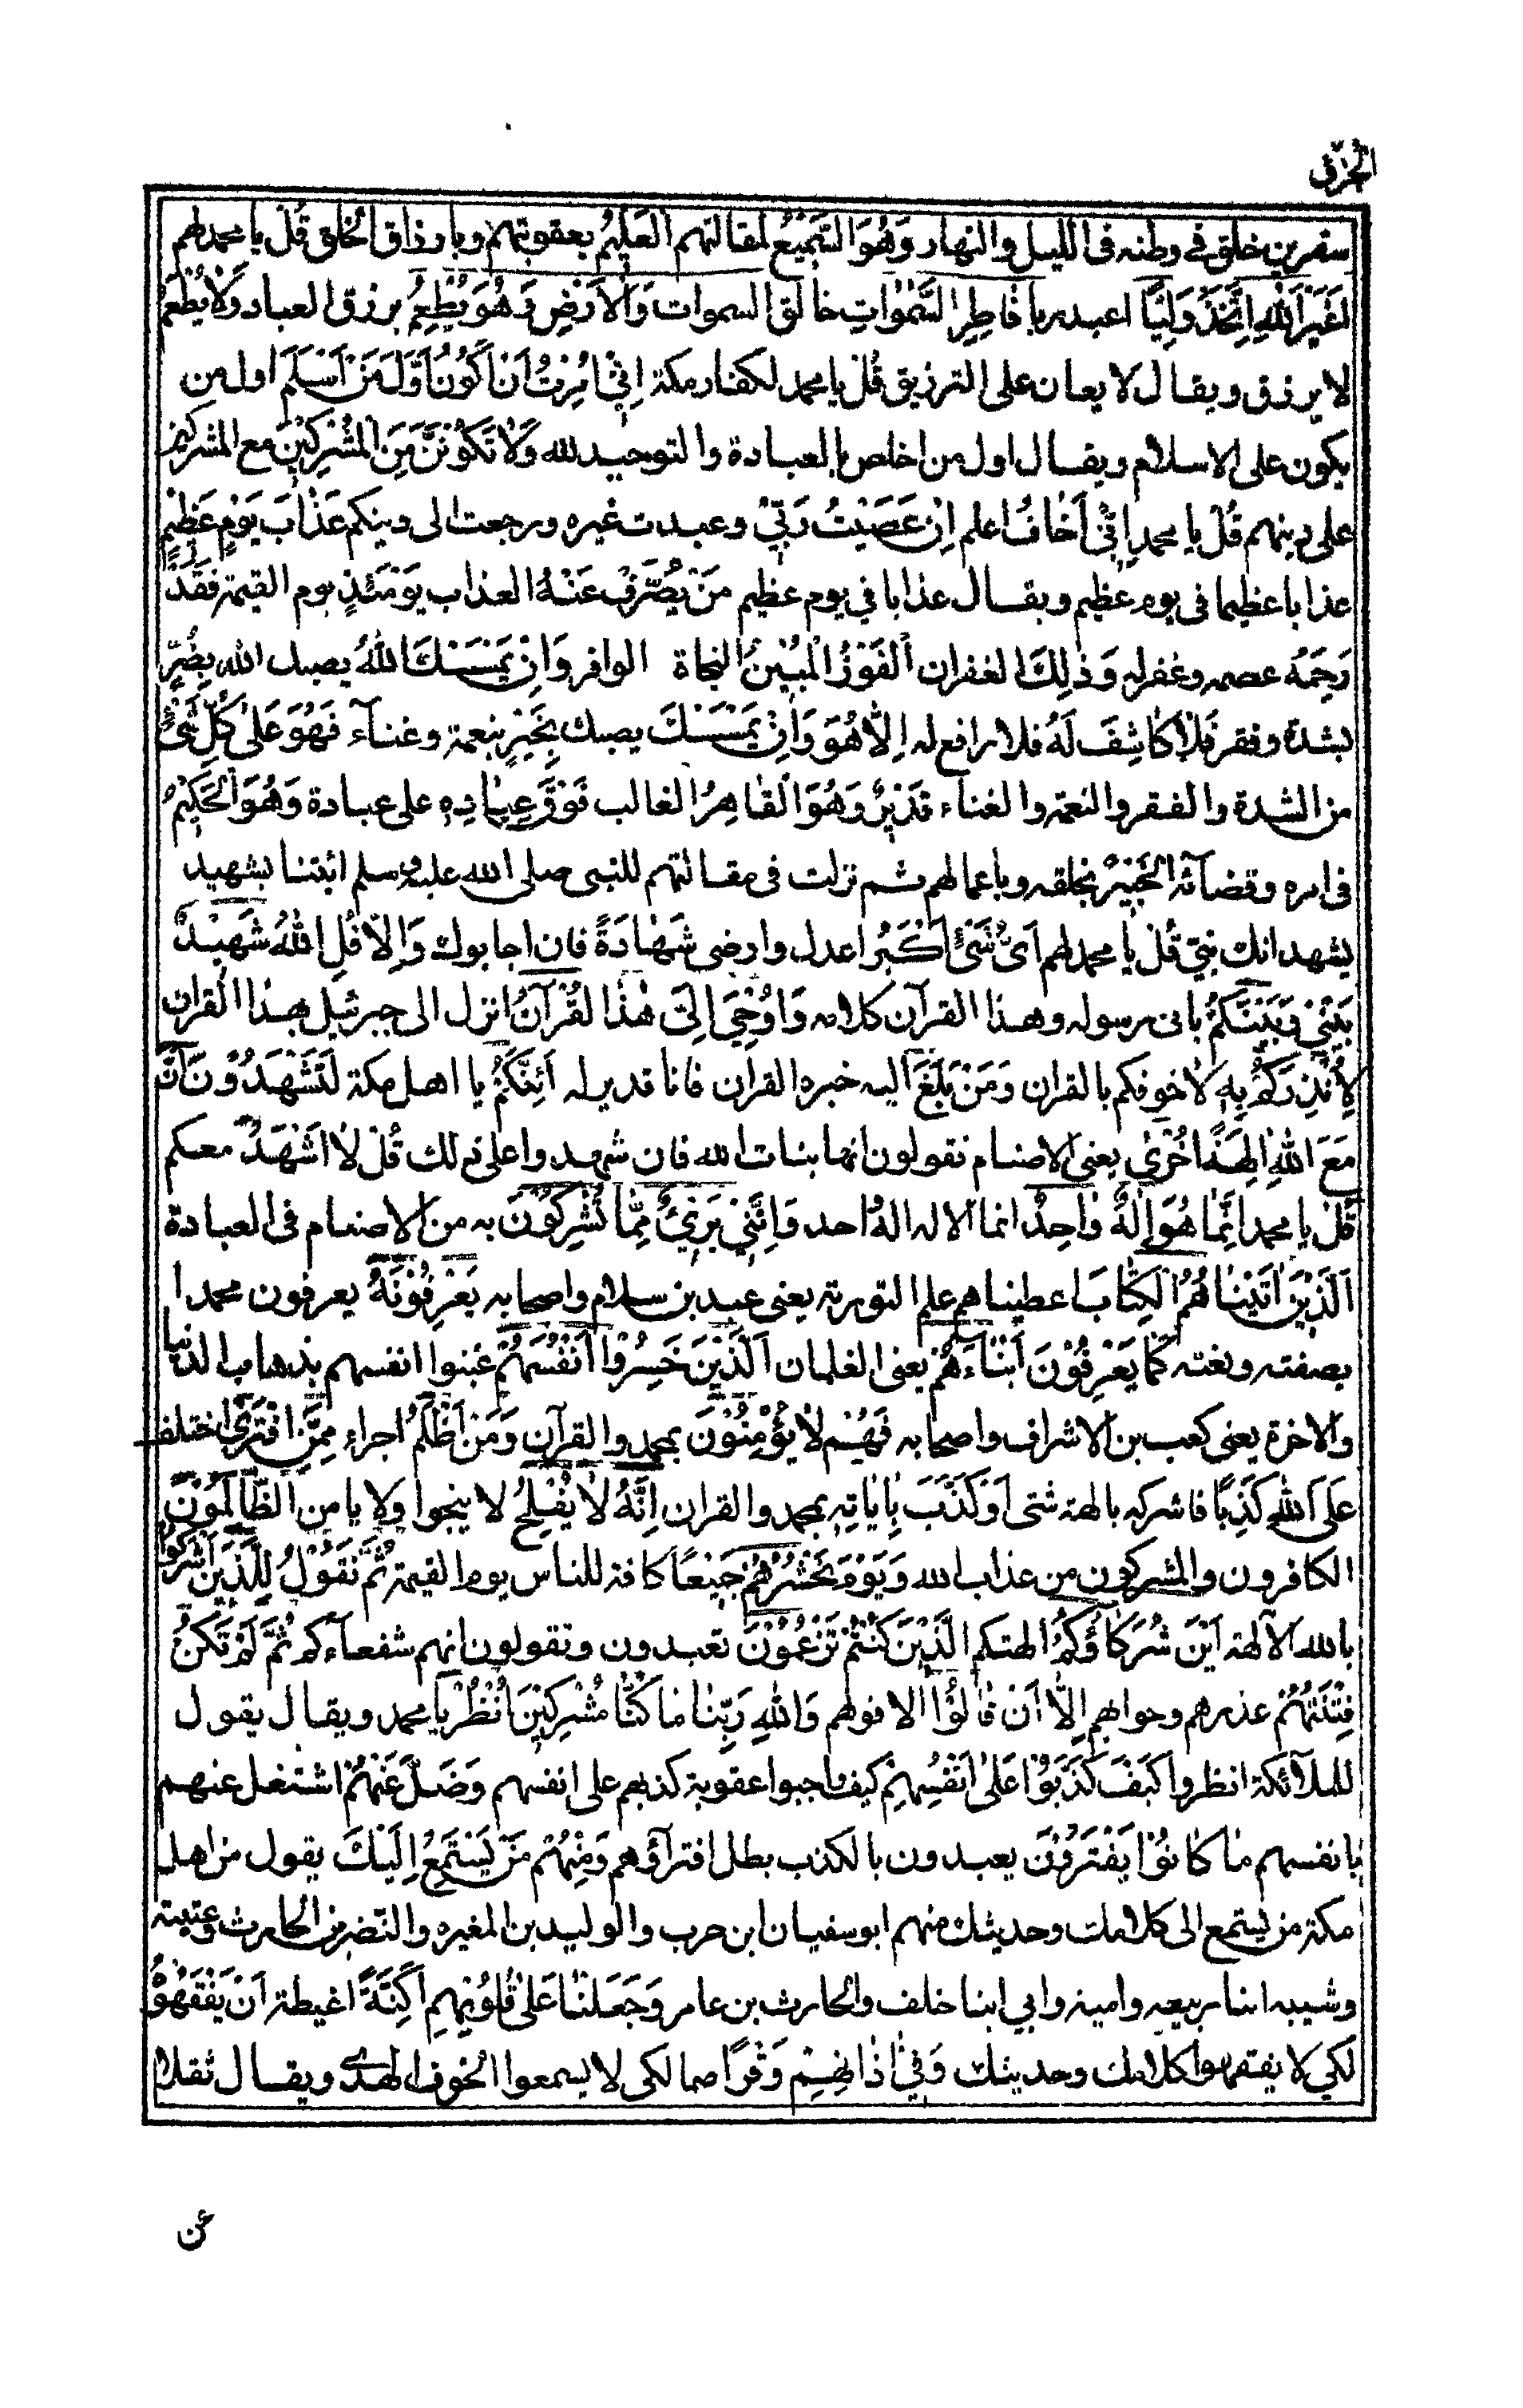 الجزئی
مستقرين خلق في وطنه في الليل والنهار وَهُوَ السَّمِيْعُ لمقالتهم الْعَلِيْمُ بعقوبتهم وبارزاق الخلق قُلْ يا محمد لهم
اَغَيْرَ اللّٰهِ اَتَّخِذُ وَلِيًّا اعبد ربا فَاطِرِ السَّمٰوَاتِ خالق السموات وَالْاَرْضِ وَهُوَ يُطْعِمُ يرزق العباد وَلَا يُطْعَمُ
لا يرزق ويقال لا يعان على الترزيق قُلْ يا محمد لكفار مكة اِنِّيْ اُمِرْتُ اَنْ اَكُوْنَ اَوَّلَ مَنْ اَسْلَمَ اول من
يكون على الاسلام ويقال اول من اخلص بالعبادة والتوحيد لله وَلَا تَكُوْنَنَّ مِنَ الْمُشْرِكِيْنَ مع المشركين
على دينهم قُلْ يا محمد اِنِّيْ اَخَافُ اعلم اِنْ عَصَيْتُ رَبِّيْ وعبدت غيره ورجعت الى دينكم عَذَابَ يَوْمٍ عَظِيْمٍ
عذابا عظيما في يوم عظيم ويقال عذابا في يوم عظيم مَنْ يُصْرَفْ عَنْهُ العذاب يَوْمَئِذٍ يوم القيمة فَقَدْ
رَحِمَهُ عصمه وغفر له وَذٰلِكَ الغفران الْفَوْزُ الْمُبِيْنُ النجاة الوافر وَاِنْ يَمْسَسْكَ اللّٰهُ يصبك الله بِضُرٍّ
بشدة وفقر فَلَا كَاشِفَ لَهُ فلا رافع له اِلَّا هُوَ وَاِنْ يَمْسَسْكَ يصبك بِخَيْرٍ بنعمة وغناء فَهُوَ عَلٰى كُلِّ شَيْءٍ
من الشدة والفقر والنعمة والغناء قَدِيْرٌ وَهُوَ الْقَاهِرُ الغالب فَوْقَ عِبَادِهِ على عبادة وَهُوَ الْحَكِيْمُ
في امره وقضائه الْخَبِيْرُ بخلقه وباعمالهم ثم نزلت في مقالتهم للنبي صلى الله عليه وسلم ائتنا بشهيد
يشهد انك نبي قُلْ يا محمد لهم اَيُّ شَيْءٍ اَكْبَرُ اعدل وارضى شَهَادَةً فان اجابوك وَاِلّا قُلِ اللّٰهُ شَهِيْدٌ
بَيْنِيْ وَبَيْنَكُمْ باني رسوله وهذا القرآن كلامه وَاُوْحِيَ اِلَيَّ هٰذَا الْقُرْآنُ انزل الى جبرئيل بهذا القران
لِاُنْذِرَكُمْ بِهِ لاخوفكم بالقران وَمَنْ بَلَغَ اليه خبره القران فانا قدير له اَئِنَّكُمْ يا اهل مكة لَتَشْهَدُوْنَ اَنَّ
مَعَ اللّٰهِ اٰلِهَةً اُخْرٰى يعني الاصنام تقولون انها بنات الله فان شهدوا على ذلك قُلْ لَا اَشْهَدُ معكم
قُلْ يا محمد اِنَّمَا هُوَ اِلٰهٌ وَاحِدٌ انما الاله الهٌ احد وَاِنَّنِيْ بَرِيْءٌ مِمَّا تُشْرِكُوْنَ به من الاصنام في العبادة
اَلَّذِيْنَ اٰتَيْنَاهُمُ الْكِتَابَ اعطيناهم علم التورية يعني عبد بن سلام واصحابه يَعْرِفُوْنَهُ يعرفون محمدا
بصفته ونعته كَمَا يَعْرِفُوْنَ اَبْنَاءَهُمْ يعني الغلمان اَلَّذِيْنَ خَسِرُوْا اَنْفُسَهُمْ غبنوا انفسهم بذهاب الدنيا
والاخرة يعني كعب بن الاشراف واصحابه فَهُمْ لَا يُؤْمِنُوْنَ بمحمد والقرآن وَمَنْ اَظْلَمُ اجراء مِمَّنِ افْتَرٰى اختلق
عَلَى اللّٰهِ كَذِبًا فاشركه بالهة شتى اَوْ كَذَّبَ بِاٰيَاتِهِ بمحمد والقران اِنَّهُ لَا يُفْلِحُ لا ينجوا ولا يامن الظَّالِمُوْنَ
الكافرون والمشركون من عذاب الله وَيَوْمَ نَحْشُرُهُمْ جَمِيْعًا كافة للناس يوم القيمة ثُمَّ نَقُوْلُ لِلَّذِيْنَ اَشْرَكُوْا
بالله الآلهة اَيْنَ شُرَكَاؤُكُمُ الهتكم الَّذِيْنَ كُنْتُمْ تَزْعُمُوْنَ تعبدون وتقولون انهم شفعاءكم ثُمَّ لَمْ تَكُنْ
فِتْنَتُهُمْ عذرهم وجوابهم اِلَّا اَنْ قَالُوْا الا قولهم وَاللّٰهِ رَبِّنَا مَا كُنَّا مُشْرِكِيْنَ اُنْظُرْ يا محمد ويقال يقول
للملآئكة انظروا كَيْفَ كَذَبُوْا عَلٰى اَنْفُسِهِمْ كيف اجبوا عقوبة كذبهم على انفسهم وَضَلَّ عَنْهُمْ اشتغل عنهم
بانفسهم مَا كَانُوْا يَفْتَرُوْنَ يعبدون بالكذب بطل افترآؤهم وَمِنْهُمْ مَنْ يَسْتَمِعُ اِلَيْكَ يقول من اهل
مكة من يستمع الى كلامك وحديثك منهم ابوسفيان ابن حرب والوليد بن المغيره والنّضر بن الحارث وعتيبة
وشيبه ابنا ربيعه وامية وابي ابنا خلف والحارث بن عامر وَجَعَلْنَا عَلٰى قُلُوْبِهِمْ اَكِنَّةً اغيطة اَنْ يَفْقَهُوْهُ
لكي لا يفقهوا كلامك وحديثك وَفِيْ اٰذَانِهِمْ وَقْرًا صما لكي لا يسمعوا الخوف الهدى ويقال ثقلا
عن